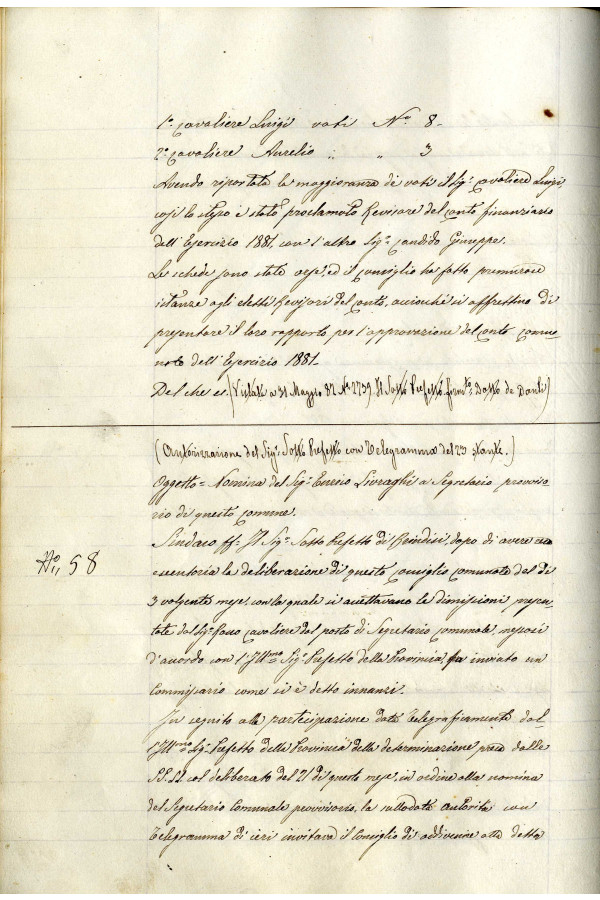 1º Cavaliere Luigi voti Nº 8-
2º Cavaliere Aurelio " " 3
Avendo riportata la maggioranza di voti il Sigr Cavaliere Luigi,
così lo stesso è stato proclamato Revisore del conto finanziario
dell'Esercizio 1881, con l'altro Sigr Candido Giuseppe.
Le schede sono state arse, ed il Consiglio ha fatto premurose
istanze agli eletti Revisori del conto, acciochè si affrettino di
presentare il loro rapporto per l'approvazione del conto comu-
nale dell'Esercizio 1881-
Del che ec. (Vistata a 31 Maggio 82 Nº 2739. Il Sotto Prefetto firmto: Dosso de Dardi)
(Autorizzazione del Sigr Sotto Prefetto con Telegramma del 23 stante.)
Oggetto = Nomina del Sigr Enrico Livraghi a Segretario provviso
rio di questo Comune.
Nº" 58
Sindaco ff. Il Sigr Sotto Prefetto di Brindisi, dopo di avere
esecutoria la deliberazione di questo Consiglio comunale del dì
3 volgente mese, con la quale si accettavano le dimissioni presen-
tate dal Sigr Cavaliere dal posto di Segretario Comunale,
d'accordo con l'Illmo Sigr Prefetto della Provincia, ha inviato un
Commissario come si è detto innanzi.
In seguito alla partecipazione data telegraficamente dal-
l'Illmo Sigr Prefetto della Provincia della determinazione presa dalle
SS. LL. col deliberato del 21 di questo mese, in ordine alla nomina
del Segretario Comunale provvisorio, la sullodata autorità con
Telegramma di ieri invitava il Consiglio di addivenire alla detta